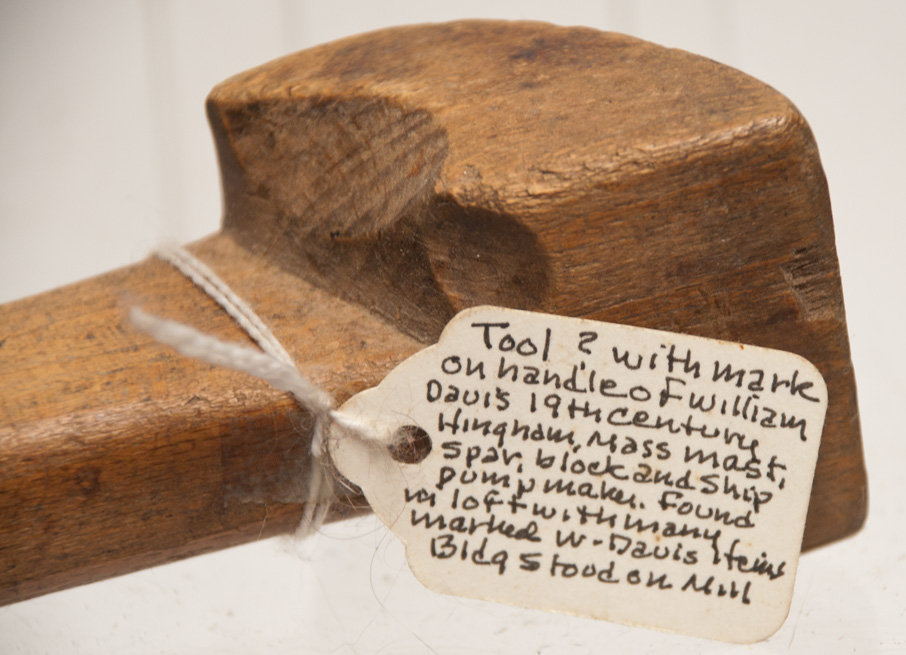 Tool ? with mark
on handle of william
Davis 19th century
Hingham, Mass mast,
spar, block and ship
pump maker. Found
in loft with many
marked W-Davis items
Bldg stood on Mill